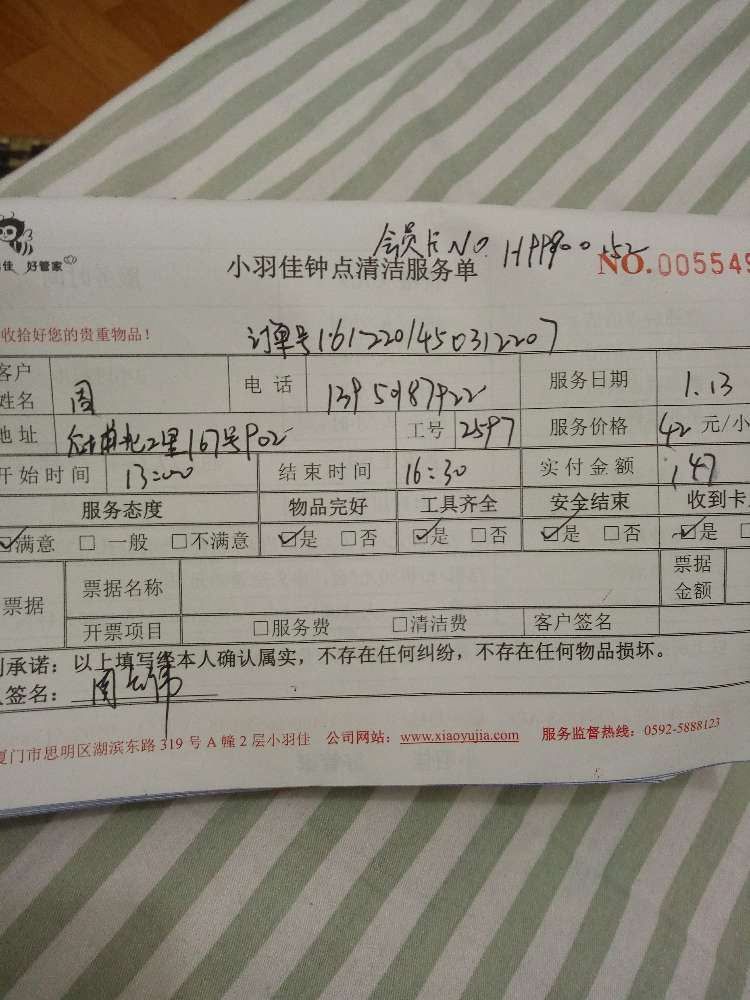 佳 好管家
会员卡NO.
小羽佳钟点清洁服务单 NO.005549
收拾好您的贵重物品！ 订单号
客户姓名 周 电话 服务日期 1.13
地址 167号902 工号 2597 服务价格 42 元/小
开始时间 13:00 结束时间 16:30 实付金额 147
服务态度 物品完好 工具齐全 安全结束 收到卡
☑满意 □ 一般 □不满意 ☑是 □否 ☑是 □否 ☑是 □否 ☑是 □
票据 票据名称 票据金额
开票项目 □服务费 □清洁费 客户签名
承诺：以上填写经本人确认属实，不存在任何纠纷，不存在任何物品损坏。
签名： 周
厦门市思明区湖滨东路 319 号 A 幢 2 层小羽佳 公司网站：www.xiaoyujia.com 服务监督热线：0592-5888123